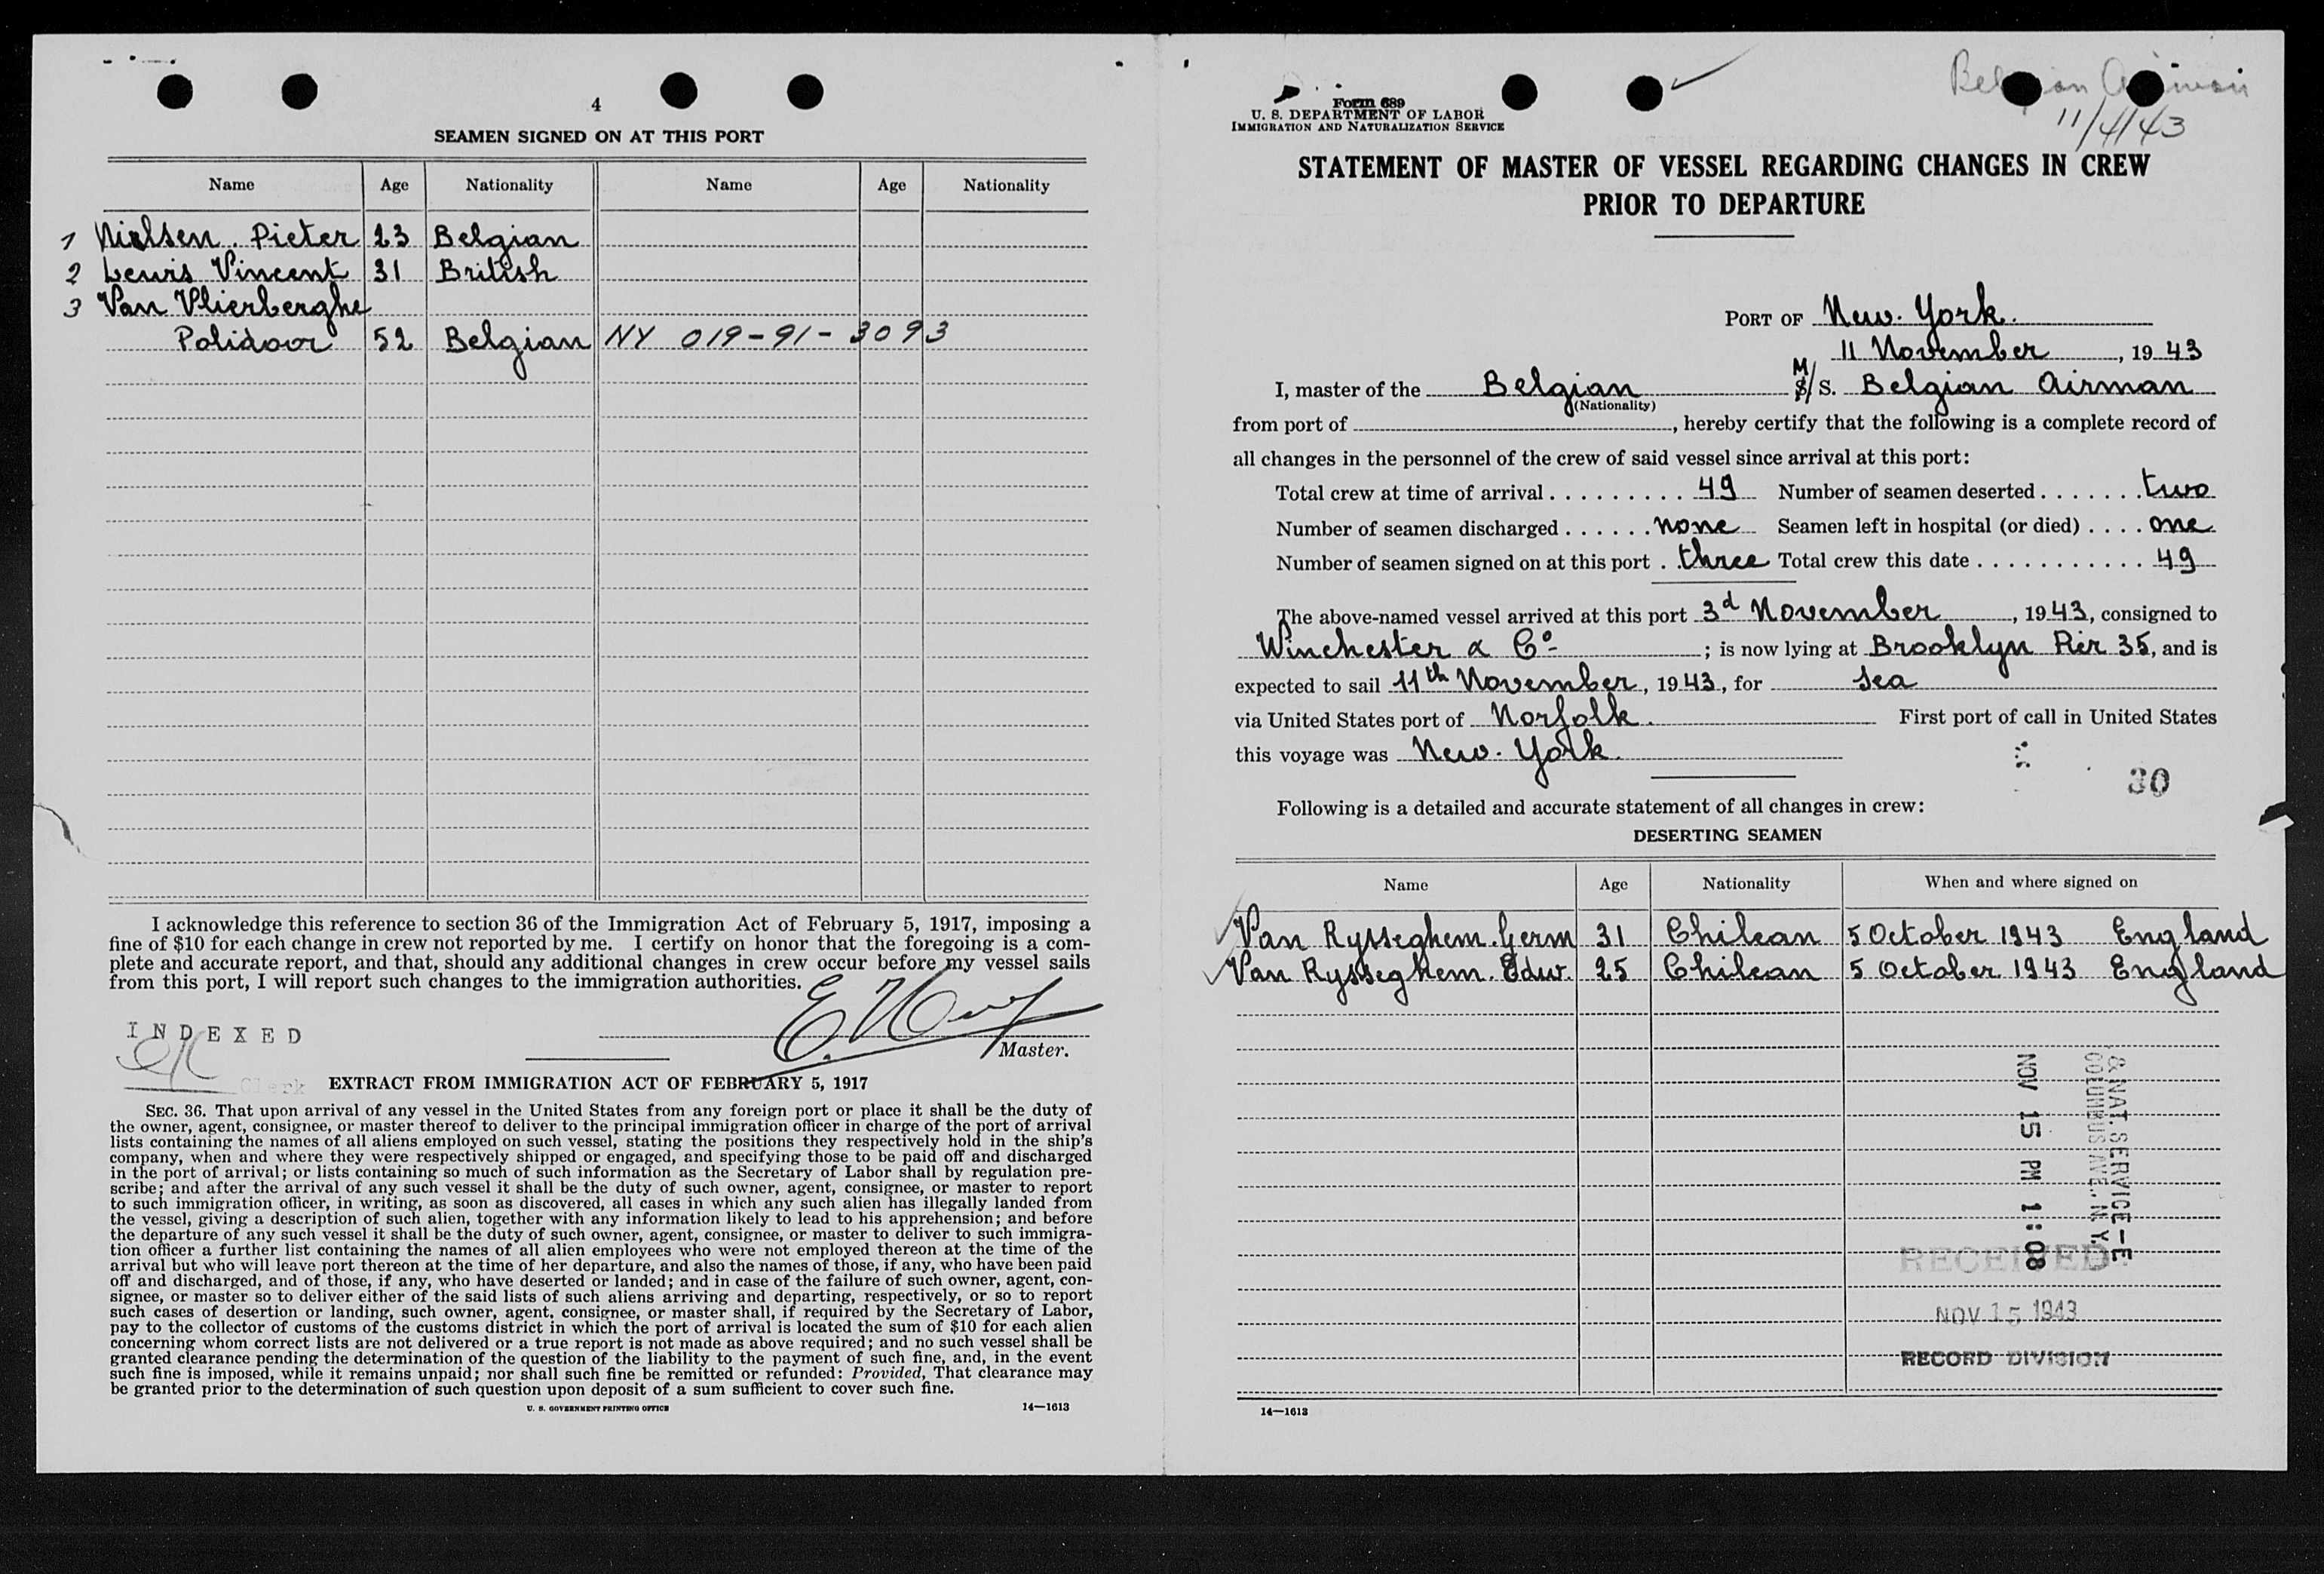 4
SEAMEN SIGNED ON AT THIS PORT
Name Age Nationality Name Age Nationality
1 Nielsen. Pieter 23 Belgian
2 Lewis Vincent 31 British
3 Van Vlierberghe
Polidoor 52 Belgian NY 019-91-3093
I acknowledge this reference to section 36 of the Immigration Act of February 5, 1917, imposing a
fine of $10 for each change in crew not reported by me. I certify on honor that the foregoing is a com-
plete and accurate report, and that, should any additional changes in crew occur before my vessel sails
from this port, I will report such changes to the immigration authorities.
INDEXED
Master.
Clerk
EXTRACT FROM IMMIGRATION ACT OF FEBRUARY 5, 1917
SEC. 36. That upon arrival of any vessel in the United States from any foreign port or place it shall be the duty of
the owner, agent, consignee, or master thereof to deliver to the principal immigration officer in charge of the port of arrival
lists containing the names of all aliens employed on such vessel, stating the positions they respectively hold in the ship's
company, when and where they were respectively shipped or engaged, and specifying those to be paid off and discharged
in the port of arrival; or lists containing so much of such information as the Secretary of Labor shall by regulation pre-
scribe; and after the arrival of any such vessel it shall be the duty of such owner, agent, consignee, or master to report
to such immigration officer, in writing, as soon as discovered, all cases in which any such alien has illegally landed from
the vessel, giving a description of such alien, together with any information likely to lead to his apprehension; and before
the departure of any such vessel it shall be the duty of such owner, agent, consignee, or master to deliver to such immigra-
tion officer a further list containing the names of all alien employees who were not employed thereon at the time of the
arrival but who will leave port thereon at the time of her departure, and also the names of those, if any, who have been paid
off and discharged, and of those, if any, who have deserted or landed; and in case of the failure of such owner, agent, con-
signee, or master so to deliver either of the said lists of such aliens arriving and departing, respectively, or so to report
such cases of desertion or landing, such owner, agent, consignee, or master shall, if required by the Secretary of Labor,
pay to the collector of customs of the customs district in which the port of arrival is located the sum of $10 for each alien
concerning whom correct lists are not delivered or a true report is not made as above required; and no such vessel shall be
granted clearance pending the determination of the question of the liability to the payment of such fine, and, in the event
such fine is imposed, while it remains unpaid; nor shall such fine be remitted or refunded: Provided, That clearance may
be granted prior to the determination of such question upon deposit of a sum sufficient to cover such fine.
U. S. GOVERNMENT PRINTING OFFICE 14—1613
Form 689
U. S. DEPARTMENT OF LABOR
IMMIGRATION AND NATURALIZATION SERVICE
11/4/43
STATEMENT OF MASTER OF VESSEL REGARDING CHANGES IN CREW
PRIOR TO DEPARTURE
PORT OF New. York.
11 November, 1943
I, master of the Belgian M/S. Belgian Airman
(Nationality)
from port of , hereby certify that the following is a complete record of
all changes in the personnel of the crew of said vessel since arrival at this port:
Total crew at time of arrival 49 Number of seamen deserted two
Number of seamen discharged none Seamen left in hospital (or died) one
Number of seamen signed on at this port three Total crew this date 49
The above-named vessel arrived at this port 3d November, 1943, consigned to
Winchester & Co; is now lying at Brooklyn Pier 35, and is
expected to sail 11th November, 1943, for Sea
via United States port of Norfolk. First port of call in United States
this voyage was New. York.
30
Following is a detailed and accurate statement of all changes in crew:
DESERTING SEAMEN
Name Age Nationality When and where signed on
Van Rysseghem. Germ 31 Chilean 5 October 1943 England
Van Rysseghem. Edw. 25 Chilean 5 October 1943 England
& NAT. SERVICE-E
COLUMBUS AVE. N.Y.
NOV 15 PM 1:08
RECEIVED
NOV 15 1943
RECORD DIVISION
14—1613